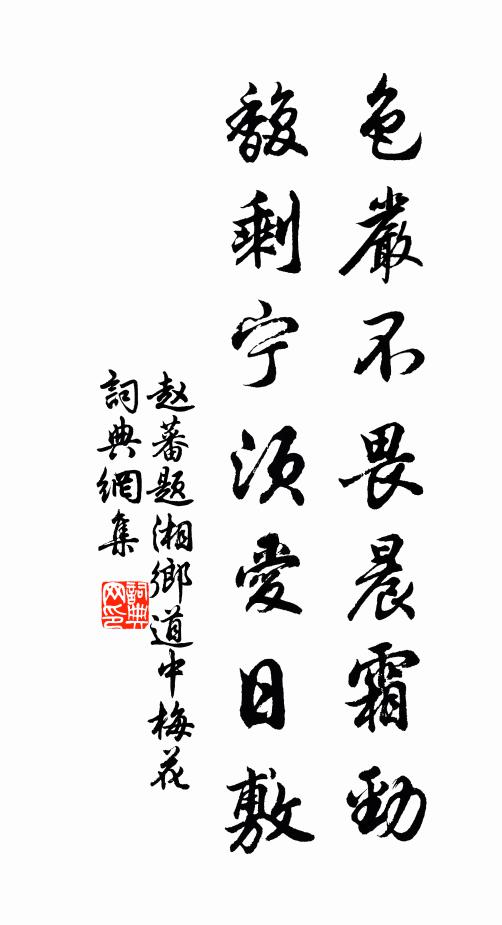 色嚴不畏晨霜勁
馥剩宁須愛日敷
赵蕃题湘鄉道中梅花
詞典網集
詞典
网印